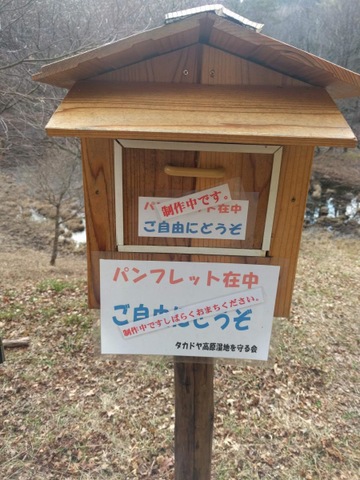 パンフレット在中
制作中です。
ご自由にどうぞ
パンフレット在中
ご自由にどうぞ
制作中ですしばらくおまちください。
タカドヤ高原湿地を守る会